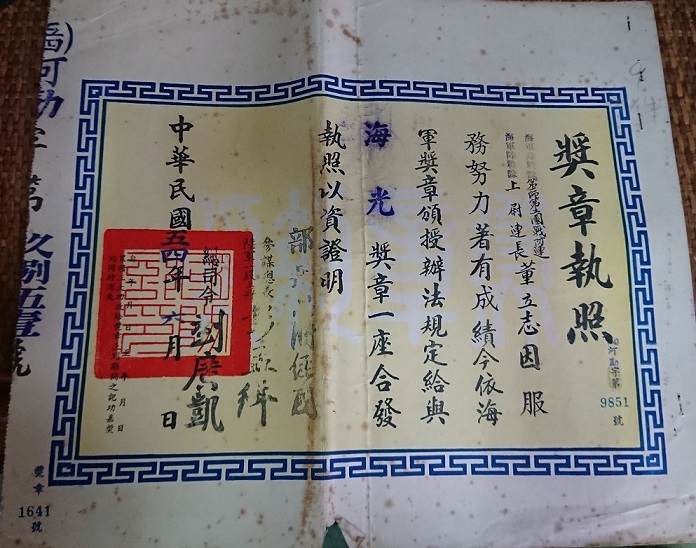 獎章執照
河勤字第
9851
號
海軍陸戰隊
海軍陸戰隊上尉連長董立志因服
務努力著有成績今依海
軍獎章頒授辦法規定給與
海光獎章一座合發
執照以資證明
部長蔣經國
參謀總長
總司令劉廣凱
中華民國五四年六月 日
河勤字第玖捌五壹號
獎章
1641
號